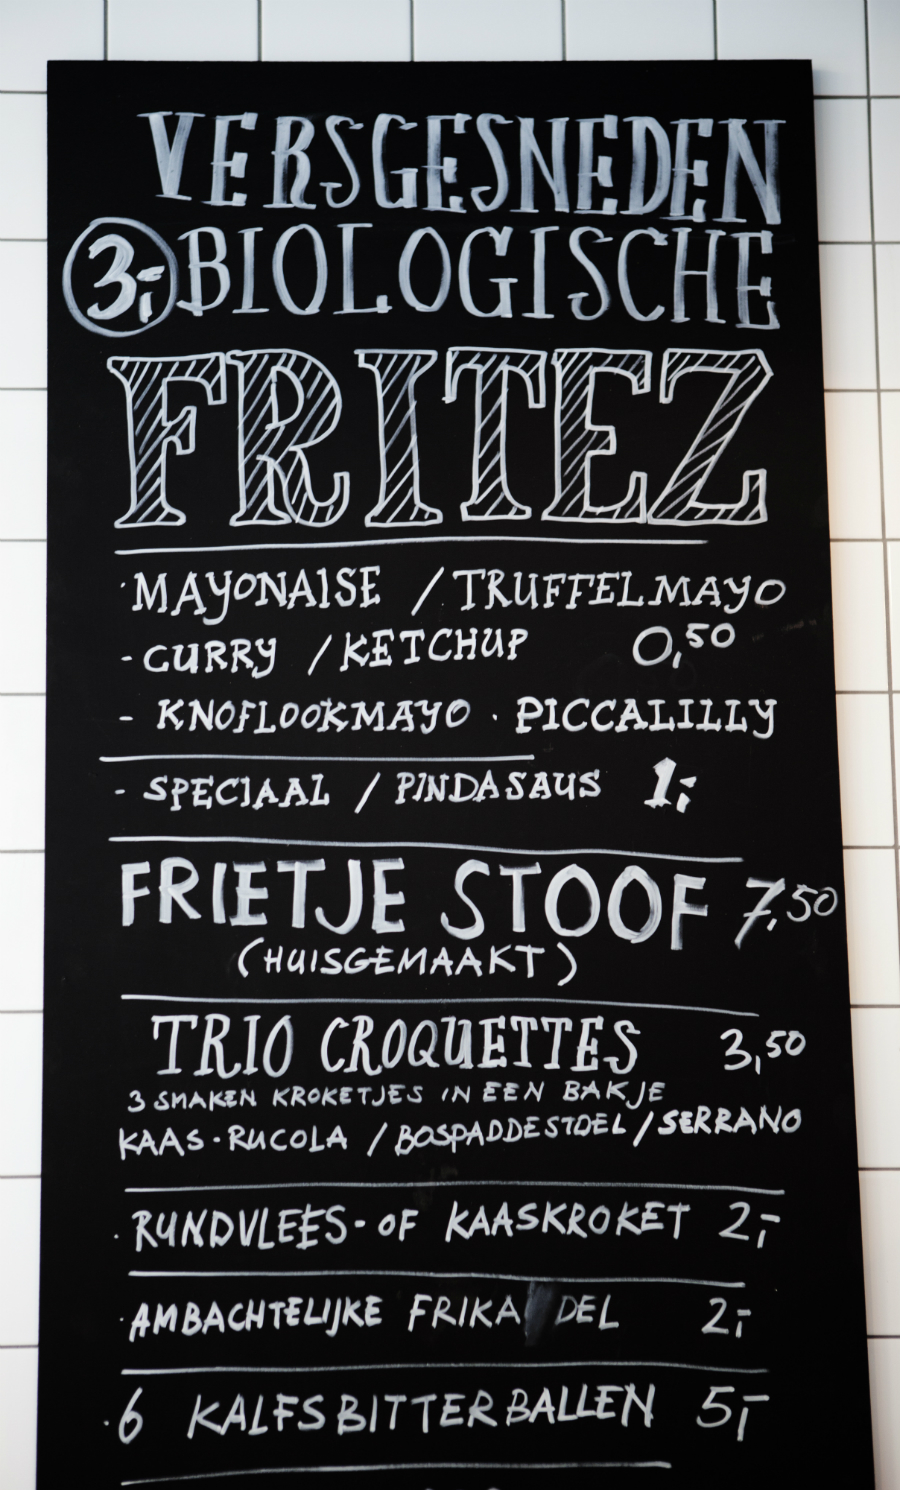 VERSGESNEDEN
3,- BIOLOGISCHE
FRITEZ
·MAYONAISE / TRUFFELMAYO
-CURRY / KETCHUP 0,50
- KNOFLOOKMAYO · PICCALILLY
- SPECIAAL / PINDASAUS 1,-
FRIETJE STOOF 7,50
(HUISGEMAAKT)
TRIO CROQUETTES 3,50
3 SMAKEN KROKETJES IN EEN BAKJE
KAAS·RUCOLA / BOSPADDESTOEL / SERRANO
·RUNDVLEES- OF KAASKROKET 2,-
·AMBACHTELIJKE FRIKA DEL 2,-
·6 KALFSBITTERBALLEN 5,-